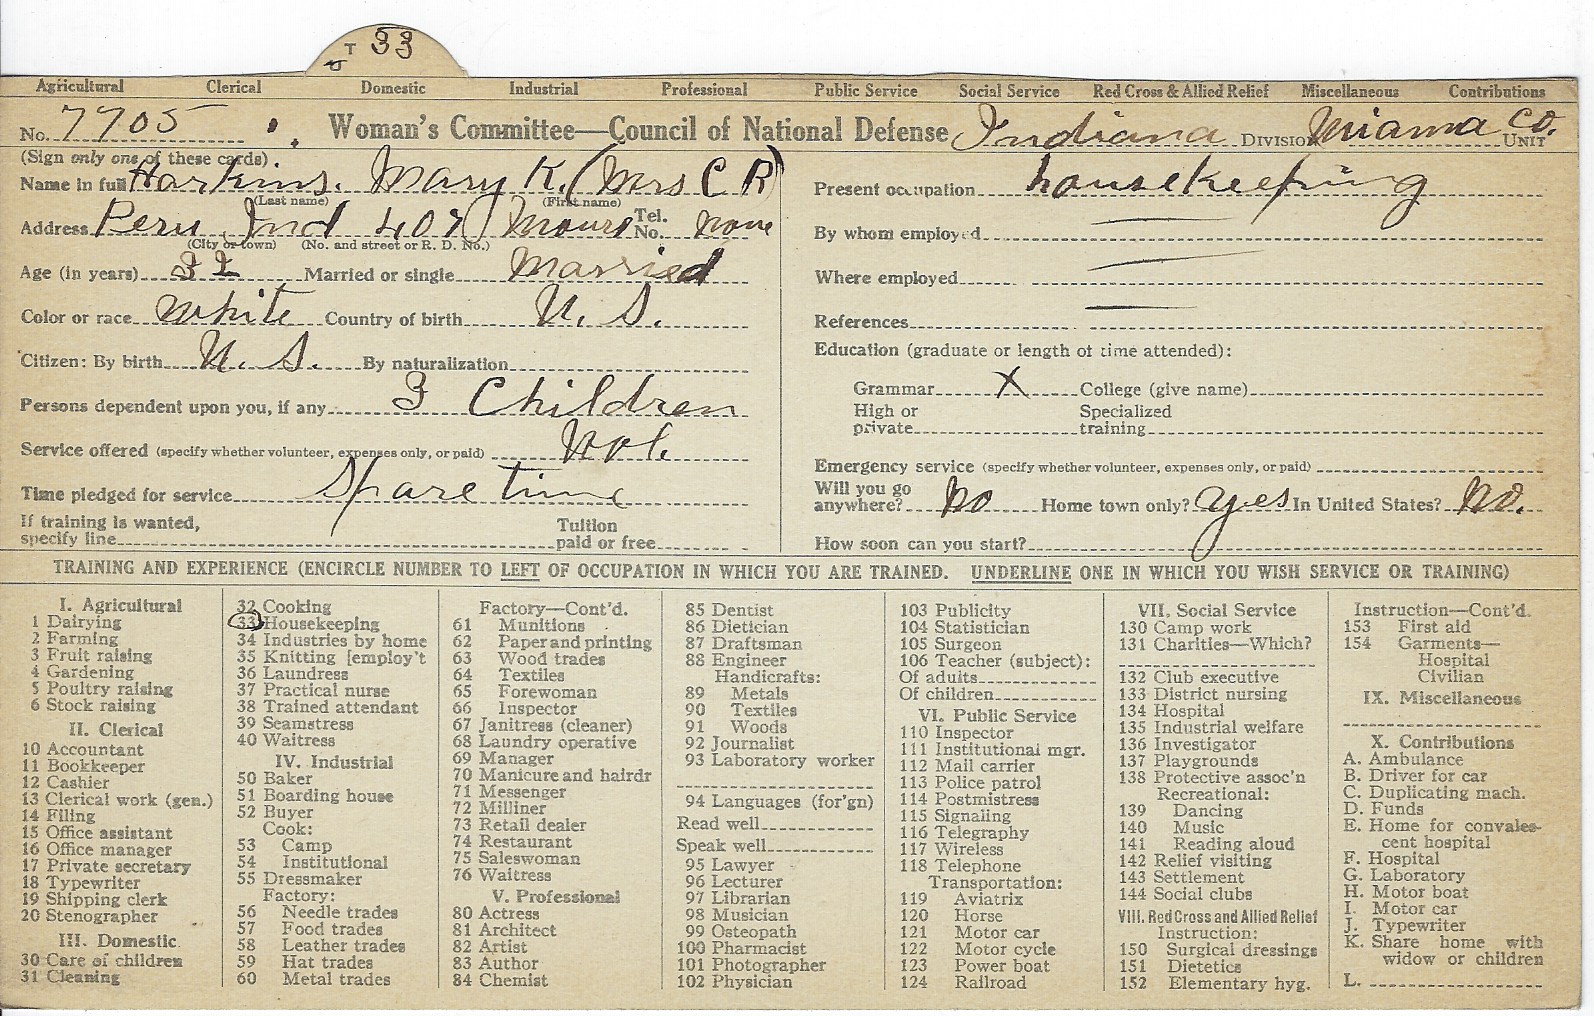 T 33
Agricultural Clerical Domestic Industrial Professional Public Service Social Service Red Cross & Allied Relief Miscellaneous Contributions
No. 7705 Woman's Committee—Council of National Defense Indiana DIVISION Miama Co. UNIT
(Sign only one of these cards)
Name in full Harkins. Mary K. (Mrs C R)
(Last name) (First name)
Address Peru Ind Tel. No. none
(City or town) (No. and street or R. D. No.)
Age (in years) 32 Married or single Married
Color or race White Country of birth U. S.
Citizen: By birth U. S. By naturalization
Persons dependent upon you, if any 3 Children
Service offered (specify whether volunteer, expenses only, or paid) Vol.
Time pledged for service Spare time
If training is wanted, specify line Tuition paid or free
Present occupation housekeeping
By whom employed
Where employed
References
Education (graduate or length of time attended):
Grammar X College (give name)
High or private Specialized training
Emergency service (specify whether volunteer, expenses only, or paid)
Will you go anywhere? No Home town only? yes In United States? No.
How soon can you start?
TRAINING AND EXPERIENCE (ENCIRCLE NUMBER TO LEFT OF OCCUPATION IN WHICH YOU ARE TRAINED. UNDERLINE ONE IN WHICH YOU WISH SERVICE OR TRAINING)
I. Agricultural
1 Dairying
2 Farming
3 Fruit raising
4 Gardening
5 Poultry raising
6 Stock raising
II. Clerical
10 Accountant
11 Bookkeeper
12 Cashier
13 Clerical work (gen.)
14 Filing
15 Office assistant
16 Office manager
17 Private secretary
18 Typewriter
19 Shipping clerk
20 Stenographer
III. Domestic
30 Care of children
31 Cleaning
32 Cooking
33 Housekeeping
34 Industries by home
35 Knitting [employ't
36 Laundress
37 Practical nurse
38 Trained attendant
39 Seamstress
40 Waitress
IV. Industrial
50 Baker
51 Boarding house
52 Buyer
Cook:
53 Camp
54 Institutional
55 Dressmaker
Factory:
56 Needle trades
57 Food trades
58 Leather trades
59 Hat trades
60 Metal trades
Factory—Cont'd.
61 Munitions
62 Paper and printing
63 Wood trades
64 Textiles
65 Forewoman
66 Inspector
67 Janitress (cleaner)
68 Laundry operative
69 Manager
70 Manicure and hairdr
71 Messenger
72 Milliner
73 Retail dealer
74 Restaurant
75 Saleswoman
76 Waitress
V. Professional
80 Actress
81 Architect
82 Artist
83 Author
84 Chemist
85 Dentist
86 Dietician
87 Draftsman
88 Engineer
Handicrafts:
89 Metals
90 Textiles
91 Woods
92 Journalist
93 Laboratory worker
94 Languages (for'gn)
Read well
Speak well
95 Lawyer
96 Lecturer
97 Librarian
98 Musician
99 Osteopath
100 Pharmacist
101 Photographer
102 Physician
103 Publicity
104 Statistician
105 Surgeon
106 Teacher (subject):
Of adults
Of children
VI. Public Service
110 Inspector
111 Institutional mgr.
112 Mail carrier
113 Police patrol
114 Postmistress
115 Signaling
116 Telegraphy
117 Wireless
118 Telephone
Transportation:
119 Aviatrix
120 Horse
121 Motor car
122 Motor cycle
123 Power boat
124 Railroad
VII. Social Service
130 Camp work
131 Charities—Which?
132 Club executive
133 District nursing
134 Hospital
135 Industrial welfare
136 Investigator
137 Playgrounds
138 Protective assoc'n
Recreational:
139 Dancing
140 Music
141 Reading aloud
142 Relief visiting
143 Settlement
144 Social clubs
VIII. Red Cross and Allied Relief
Instruction:
150 Surgical dressings
151 Dietetics
152 Elementary hyg.
Instruction—Cont'd.
153 First aid
154 Garments—
Hospital
Civilian
IX. Miscellaneous
X. Contributions
A. Ambulance
B. Driver for car
C. Duplicating mach.
D. Funds
E. Home for convales-
cent hospital
F. Hospital
G. Laboratory
H. Motor boat
I. Motor car
J. Typewriter
K. Share home with
widow or children
L.